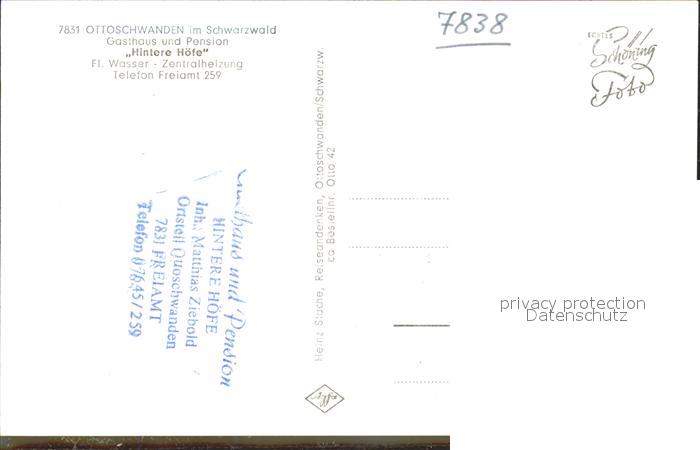 7831 OTTOSCHWANDEN im Schwarzwald
Gasthaus und Pension
„Hintere Höfe"
Fl. Wasser - Zentralheizung
Telefon Freiamt 259
7838
ECHTES
Schöning
Foto
Heinz Stache, Reiseandenken, Ottoschwanden/Schwarzw.
Bestellnr. Otto 42
und Pension
HINTERE HÖFE
Inh.: Matthias Ziebold
Ortsteil Ottoschwanden
7831 FREIAMT
Telefon 07645/259
privacy protection
Datenschutz